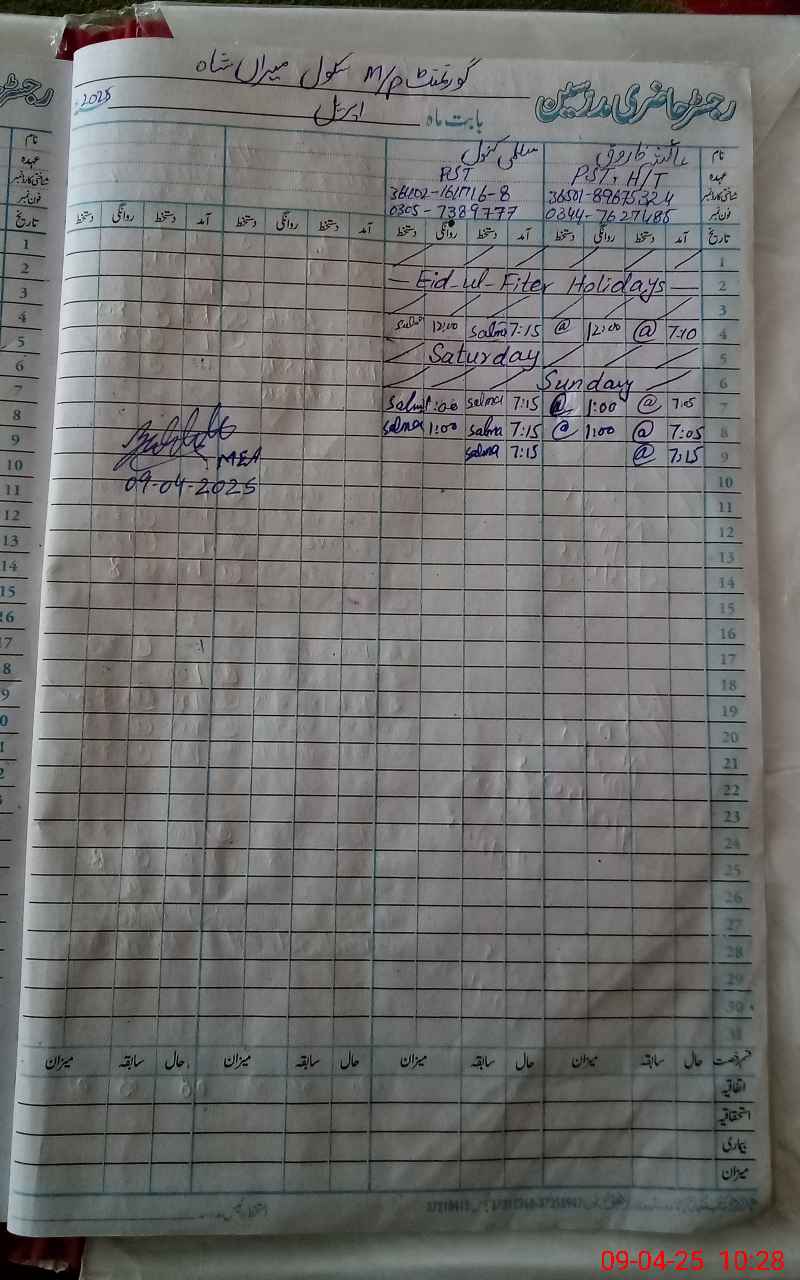 گورنمنٹ M/P سکول میراں شاہ
رجسٹر حاضری مدرسین
بابت ماہ اپریل 2025
نام عائشہ فاروق سلمیٰ کنول
عہدہ PST, H/T PST
شناختی کارڈ نمبر 36501-89675324 36102-161716-8
فون نمبر 0344-7627485 0305-7389777
تاریخ آمد دستخط روانگی دستخط آمد دستخط روانگی دستخط آمد دستخط روانگی دستخط آمد دستخط روانگی دستخط
1
2 — Eid-ul-Fiter Holidays —
3
4 7:10 @ 12:00 @ 7:15 salma 12:00 salma
5 Saturday
6 Sunday
7 7:05 @ 1:00 @ 7:15 salma 1:00 salma
8 7:05 @ 1:00 @ 7:15 salma 1:00 salma
9 7:15 @ 7:15 salma
MEA
10
09-04-2025
11
12
13
14
15
16
17
18
19
20
21
22
23
24
25
26
27
28
29
30
31
قسم رخصت حال سابقہ میزان حال سابقہ میزان حال سابقہ میزان حال سابقہ میزان
اتفاقیہ
استحقاقیہ
بیماری
میزان
09-04-25 10:28